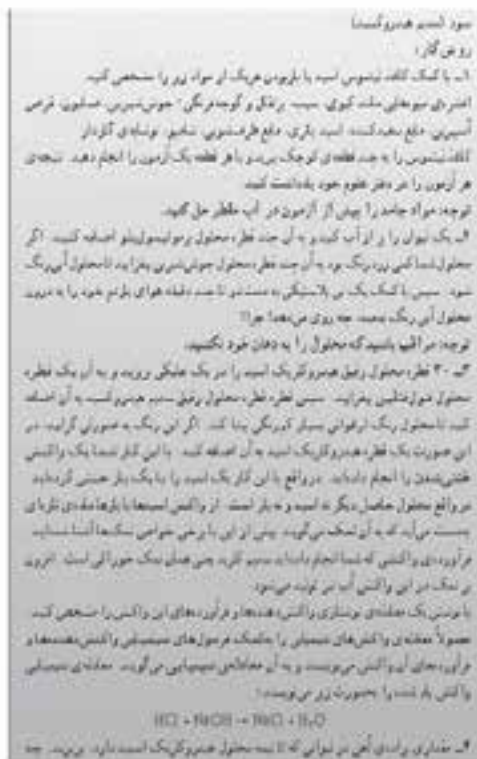 سود (سدیم هیدروکسید)
روش کار:
۱ـ با کمک کاغذ لیتموس اسید یا باز بودن هریک از مواد زیر را مشخص کنید.
افشره‌ی میوه‌هایی مانند کیوی، سیب، پرتقال و گوجه‌فرنگی، جوش‌شیرین، صابون، قرص
آسپرین، مایع سفیدکننده، اسید باتری، مایع ظرفشویی، شامپو، نوشابه‌ی گازدار
کاغذ لیتموس را به چند قطعه‌ی کوچک ببرید و با هر قطعه یک آزمون را انجام دهید. نتیجه‌ی
هر آزمون را در دفتر علوم خود یادداشت کنید.
توجه: مواد جامد را پیش از آزمون در آب مقطر حل کنید.
۲ـ یک لیوان را پر از آب کنید و به آن چند قطره محلول برموتیمول‌بلو اضافه کنید. اگر
محلول شما کمی زرد رنگ بود به آن چند قطره محلول جوش‌شیرین بیفزایید تا محلول آبی‌رنگ
شود. سپس با کمک یک نی پلاستیکی به مدت دو تا چند دقیقه هوای بازدم خود را به درون
محلول آبی رنگ بدمید. چه روی می‌دهد؟ چرا؟
توجه: مراقب باشید که محلول را به دهان خود نکشید.
۳ـ ۲۰ قطره محلول رقیق هیدروکلریک اسید را در یک بریزید و به آن یک قطره
محلول فنول‌فتالئین بیفزایید. سپس قطره قطره محلول رقیق سدیم هیدروکسید به آن اضافه
کنید تا محلول رنگ ارغوانی بسیار کم‌رنگی پیدا کند. اگر این رنگ به صورتی گرایید در
این صورت یک قطره هیدروکلریک اسید به آن اضافه کنید. با این کار شما یک واکنش
خنثی‌شدن را انجام داده‌اید. در واقع با این کار یک اسید را با یک باز خنثی کرده‌اید
در واقع محلول حاصل دیگر نه اسید و نه باز است. از واکنش اسیدها با بازها ماده‌ی تازه‌ای
به‌دست می‌آید که به آن نمک می‌گویند. پیش از این با برخی خواص نمک‌ها آشنا شده‌اید.
فرآورده‌ی واکنشی که شما انجام داده‌اید سدیم کلرید یعنی همان نمک خوراکی است. افزون
بر نمک در این واکنش آب نیز تولید می‌شود.
با نوشتن یک معادله‌ی نوشتاری واکنش‌دهنده‌ها و فرآورده‌های این واکنش را مشخص کنید.
معمولاً معادله‌ی واکنش‌های شیمیایی را به‌کمک فرمول‌های شیمیایی واکنش‌دهنده‌ها و
فرآورده‌های آن واکنش می‌نویسند و به آن معادله‌ی شیمیایی می‌گویند. معادله‌ی شیمیایی
واکنش یاد شده را به‌صورت زیر می‌نویسند:
HCl + NaOH → NaCl + H₂O
۴ـ مقداری براده‌ی آهن در لیوانی که تا نیمه محلول هیدروکلریک اسید دارد، بریزید. چه